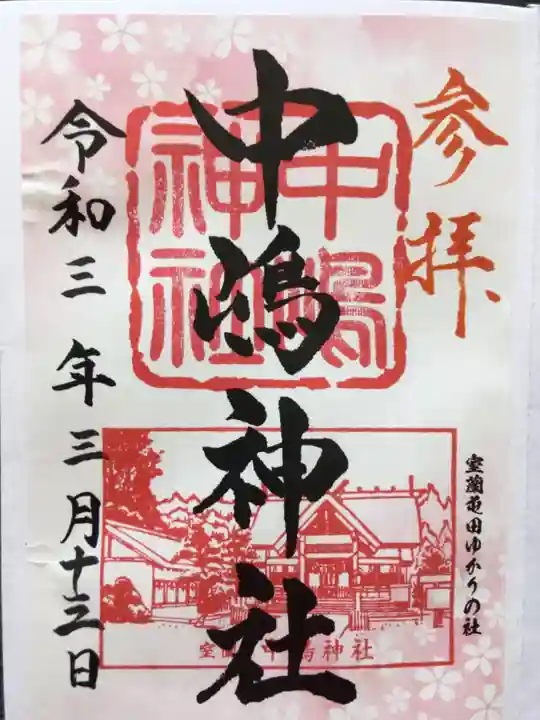 参拝
室蘭屯田ゆかりの社
中嶋神社
中嶋神社
令和三年三月十三日
室蘭 中嶋神社